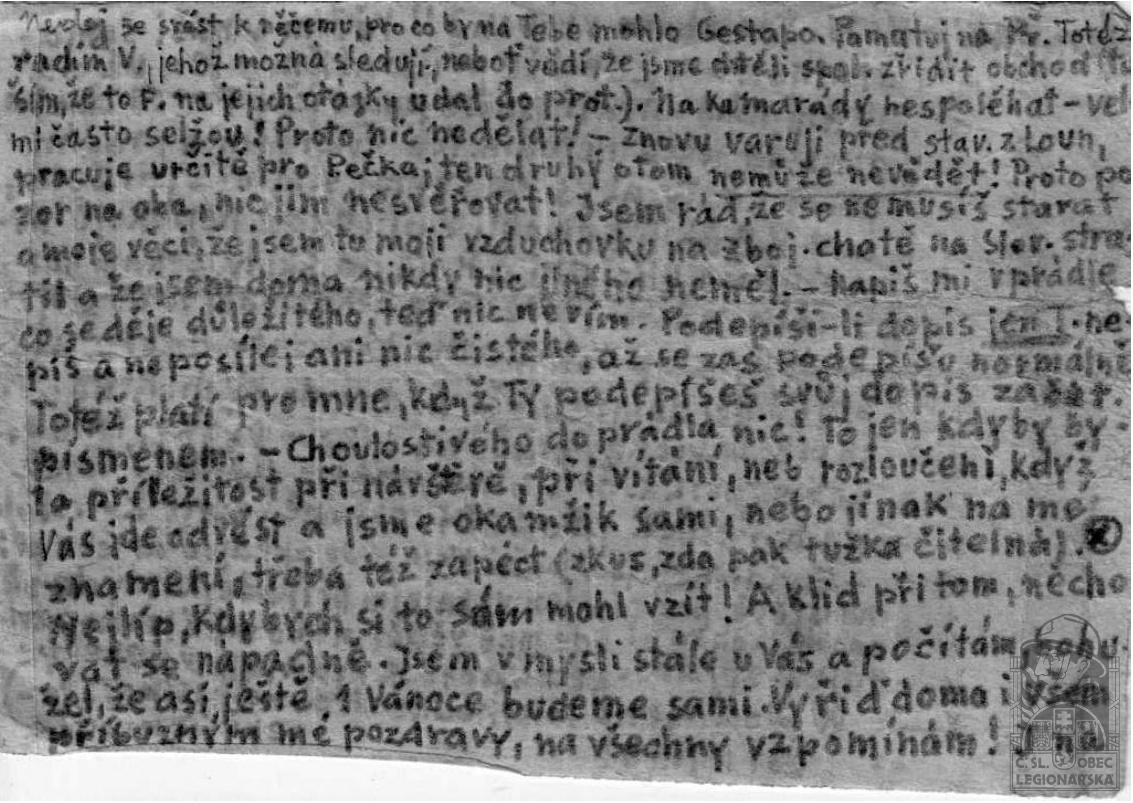 Nedej se svést k něčemu, pro co by na Tebe mohlo Gestapo. Pamatuj na Př. Totéž
radím V., jehož možná sledují, neboť vědí, že jsme chtěli spol. zřídit obchod (tu
ším, že to F. na jejich otázky udal do prot.). Na kamarády nespoléhat - vel
mi často selžou! Proto nic nedělat! - Znovu varuji před stav. z Loun,
pracuje určitě pro Pečka, ten druhý o tom nemůže nevědět! Proto po
zor na oba, nic jim nesvěřovat! Jsem rád, že se nemusíš starat
o moje věci, že jsem tu moji vzduchovku na zboj. chatě na Slov. stra-
til a že jsem doma nikdy nic jiného neměl. - Napiš mi v prádle
co se děje důležitého, teď nic nevím. Podepíši-li dopis jen I. ne-
piš a neposílej ani nic čistého, až se zas podepíšu normálně
Totéž platí pro mne, když Ty podepíšeš svůj dopis
písmenem. - Choulostivého do prádla nic! To jen kdyby by-
la příležitost při návštěvě, při vítání, neb rozloučení, když
Vás jde odvést a jsme okamžik sami, nebo jinak na mé
znamení, třeba též zapéct (zkus, zda pak tužka čitelná).
Nejlíp, kdybych si to sám mohl vzít! A klid při tom, necho
vat se nápadně. Jsem v mysli stále u Vás a počítám bohu-
žel, že asi ještě 1 Vánoce budeme sami. Vyřiď doma i všem
příbuzným mé pozdravy, na všechny vzpomínám! I na
Č. SL. OBEC
LEGIONÁŘSKÁ